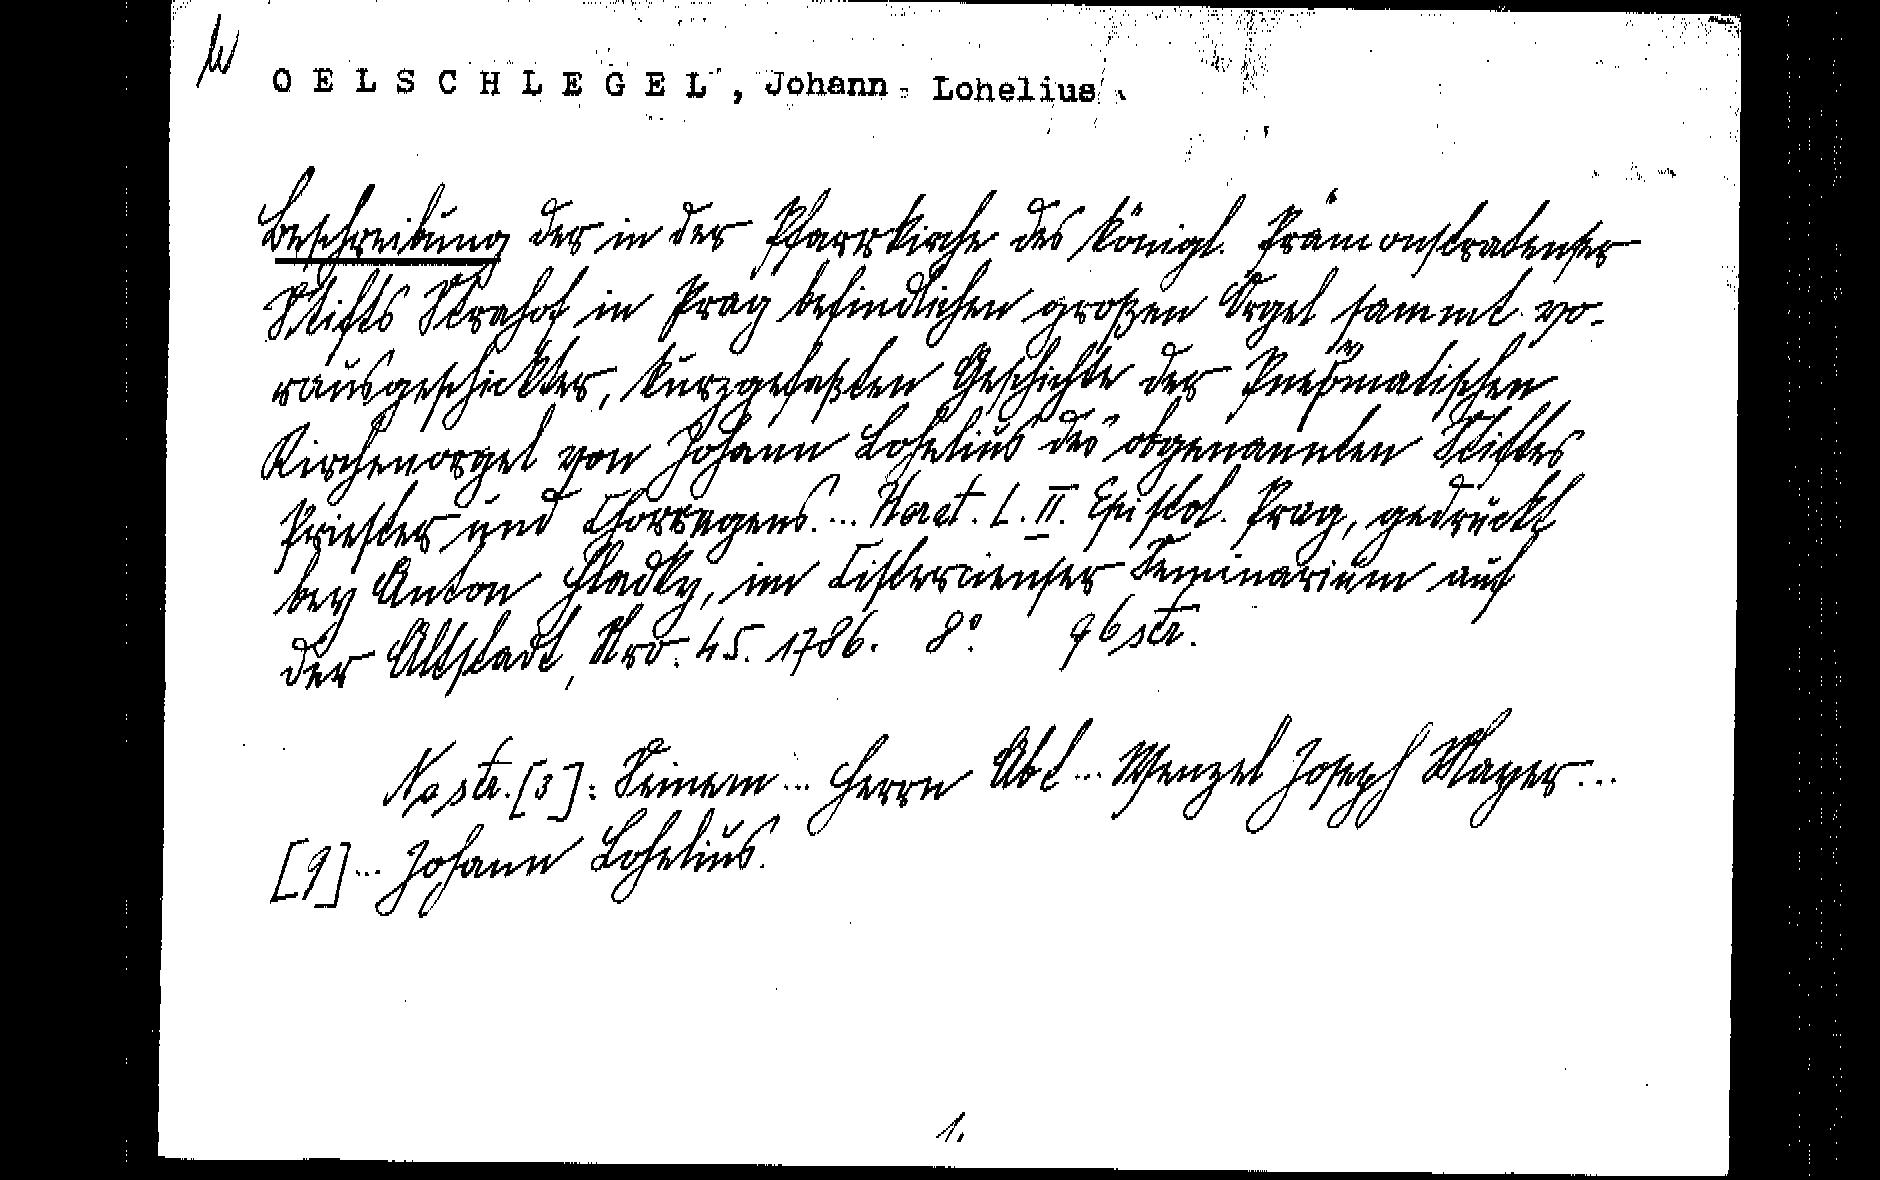 OELSCHLEGEL, Johann Lohelius
Beschreibung der in der Pfarrkirche des königl. Prämonstratenser
Stifts Strahof in Prag befindlichen großen Orgel sammt vo-
rausgeschickter, kurzgefaßten Geschichte der Pneumatischen
Kirchenorgel von Johann Lohelius des obgenannten Stiftes
Priester und Chorregens.... Horat. L. II. Epistol. Prag, gedruckt
bey Anton Hladky, im Cistercienser Seminarium auf
der Altstadt, Nro. 45. 1786. 8° 96 str.
Na str. [3]: Seinem ... Herrn Abt ... Wenzel Joseph Mayer ...
[9] ... Johann Lohelius.
1.